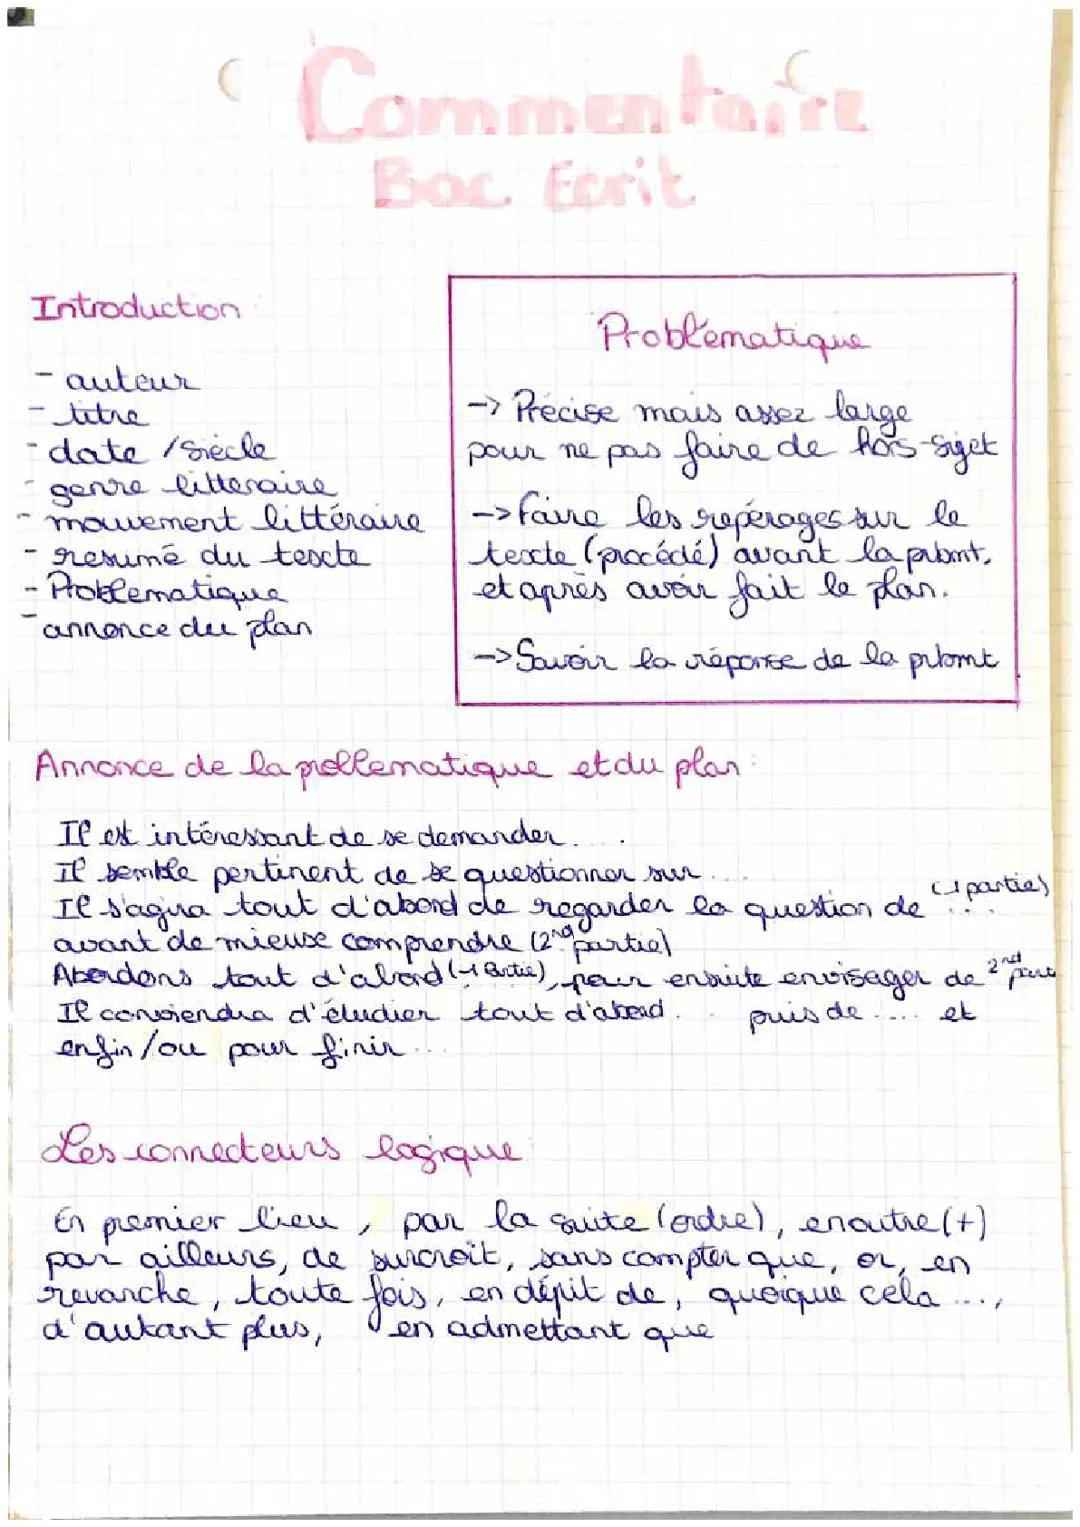 Commentaire
Bac Ecrit
Introduction :
- auteur
- titre
- date / siècle
- genre litteraire
- mouvement littéraire
- resumé du texte
- Problematique
- annonce du plan
Problématique
-> Précise mais assez large
pour ne pas faire de hors-sujet
-> Faire les repérages sur le
texte (procédé) avant la pbmt,
et après avoir fait le plan.
-> Savoir la réponse de la pbmt
Annonce de la problematique et du plan :
Il est intéressant de se demander ....
Il semble pertinent de se questionner sur ...
Il s'agira tout d'abord de regarder la question de ... (1 partie)
avant de mieux comprendre (2nd partie)
Abordons tout d'abord (1 partie), pour ensuite envisager de 2nd partie
Il conviendra d'étudier tout d'abord ... puis de .... et
enfin/ou pour finir ...
Les connecteurs logique :
En premier lieu, par la suite (ordre), enoutre (+)
par ailleurs, de surcroît, sans compter que, or, en
revanche, toute fois, en dépit de, quoique cela ...,
d'autant plus, en admettant que